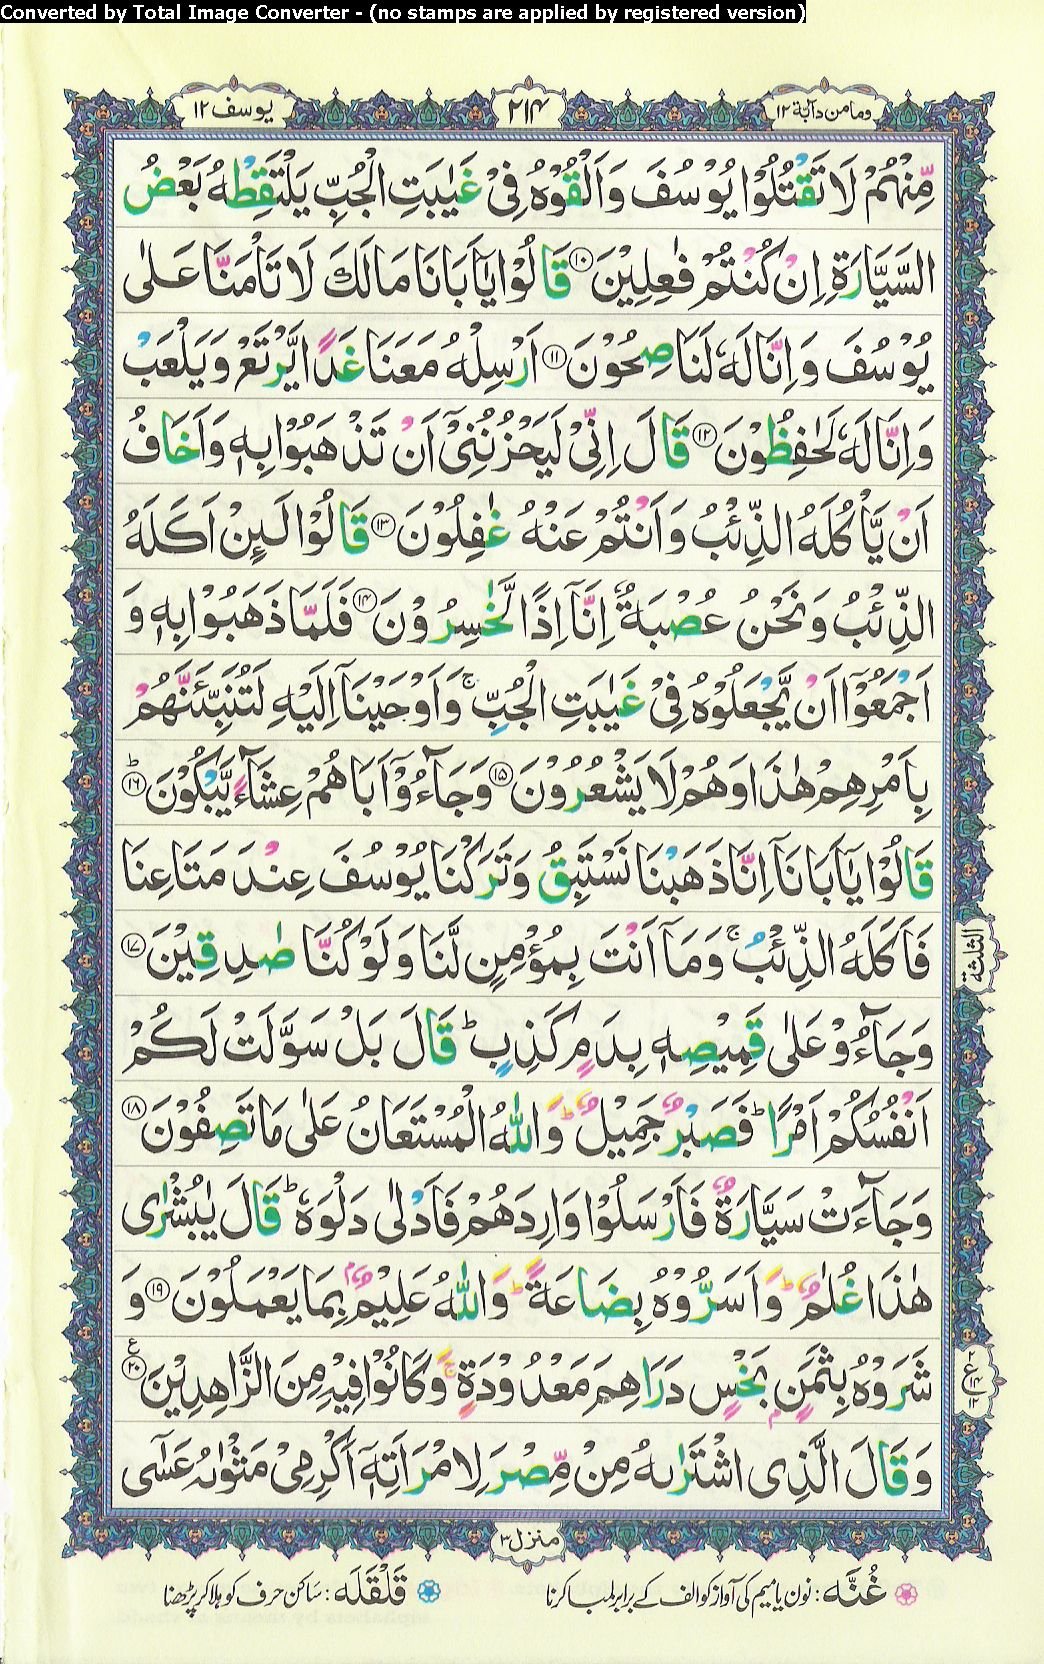 Converted by Total Image Converter - (no stamps are applied by registered version)
وما من دآبّة ١٢
٢١٤
يوسف ١٢
مِّنْهُمْ لَا تَقْتُلُوْا يُوْسُفَ وَاَلْقُوْهُ فِىْ غَيٰبَتِ الْجُبِّ يَلْتَقِطْهُ بَعْضُ
السَّيَّارَةِ اِنْ كُنْتُمْ فٰعِلِيْنَ ⑩ قَالُوْا يٰۤاَبَانَا مَالَكَ لَا تَاْمَنَّا عَلٰى
يُوْسُفَ وَاِنَّا لَهٗ لَنَاصِحُوْنَ ⑪ اَرْسِلْهُ مَعَنَا غَدًا يَّرْتَعْ وَيَلْعَبْ
وَاِنَّا لَهٗ لَحٰفِظُوْنَ ⑫ قَالَ اِنِّىْ لَيَحْزُنُنِىْۤ اَنْ تَذْهَبُوْا بِهٖ وَاَخَافُ
اَنْ يَّاْكُلَهُ الذِّئْبُ وَاَنْتُمْ عَنْهُ غٰفِلُوْنَ ⑬ قَالُوْا لَئِنْ اَكَلَهُ
الذِّئْبُ وَنَحْنُ عُصْبَةٌ اِنَّاۤ اِذًا لَّخٰسِرُوْنَ ⑭ فَلَمَّا ذَهَبُوْا بِهٖ وَ
اَجْمَعُوْۤا اَنْ يَّجْعَلُوْهُ فِىْ غَيٰبَتِ الْجُبِّ ۚ وَاَوْحَيْنَاۤ اِلَيْهِ لَتُنَبِّئَنَّهُمْ
بِاَمْرِهِمْ هٰذَا وَهُمْ لَا يَشْعُرُوْنَ ⑮ وَجَآءُوْۤ اَبَاهُمْ عِشَآءً يَّبْكُوْنَ ⑯ؕ
قَالُوْا يٰۤاَبَانَاۤ اِنَّا ذَهَبْنَا نَسْتَبِقُ وَتَرَكْنَا يُوْسُفَ عِنْدَ مَتَاعِنَا
فَاَكَلَهُ الذِّئْبُ ۚ وَمَاۤ اَنْتَ بِمُؤْمِنٍ لَّنَا وَلَوْ كُنَّا صٰدِقِيْنَ ⑰
وَجَآءُوْ عَلٰى قَمِيْصِهٖ بِدَمٍ كَذِبٍ ؕ قَالَ بَلْ سَوَّلَتْ لَكُمْ
اَنْفُسُكُمْ اَمْرًا ؕ فَصَبْرٌ جَمِيْلٌ ؕ وَاللّٰهُ الْمُسْتَعَانُ عَلٰى مَا تَصِفُوْنَ ⑱
وَجَآءَتْ سَيَّارَةٌ فَاَرْسَلُوْا وَارِدَهُمْ فَاَدْلٰى دَلْوَهٗ ؕ قَالَ يٰبُشْرٰى
هٰذَا غُلٰمٌ ؕ وَاَسَرُّوْهُ بِضَاعَةً ؕ وَاللّٰهُ عَلِيْمٌۢ بِمَا يَعْمَلُوْنَ ⑲ وَ
شَرَوْهُ بِثَمَنٍۢ بَخْسٍ دَرَاهِمَ مَعْدُوْدَةٍ ۚ وَكَانُوْا فِيْهِ مِنَ الزَّاهِدِيْنَ ⑳ ع
وَقَالَ الَّذِى اشْتَرٰىهُ مِنْ مِّصْرَ لِامْرَاَتِهٖۤ اَكْرِمِىْ مَثْوٰىهُ عَسٰۤى
الثلثة
٢
ع
١٤
١٢
منزل ٣
غُنَّه: نون یا میم کی آواز کو الف کے برابر لمبا کرنا
قَلْقَلَه: ساکن حرف کو ہلا کر پڑھنا